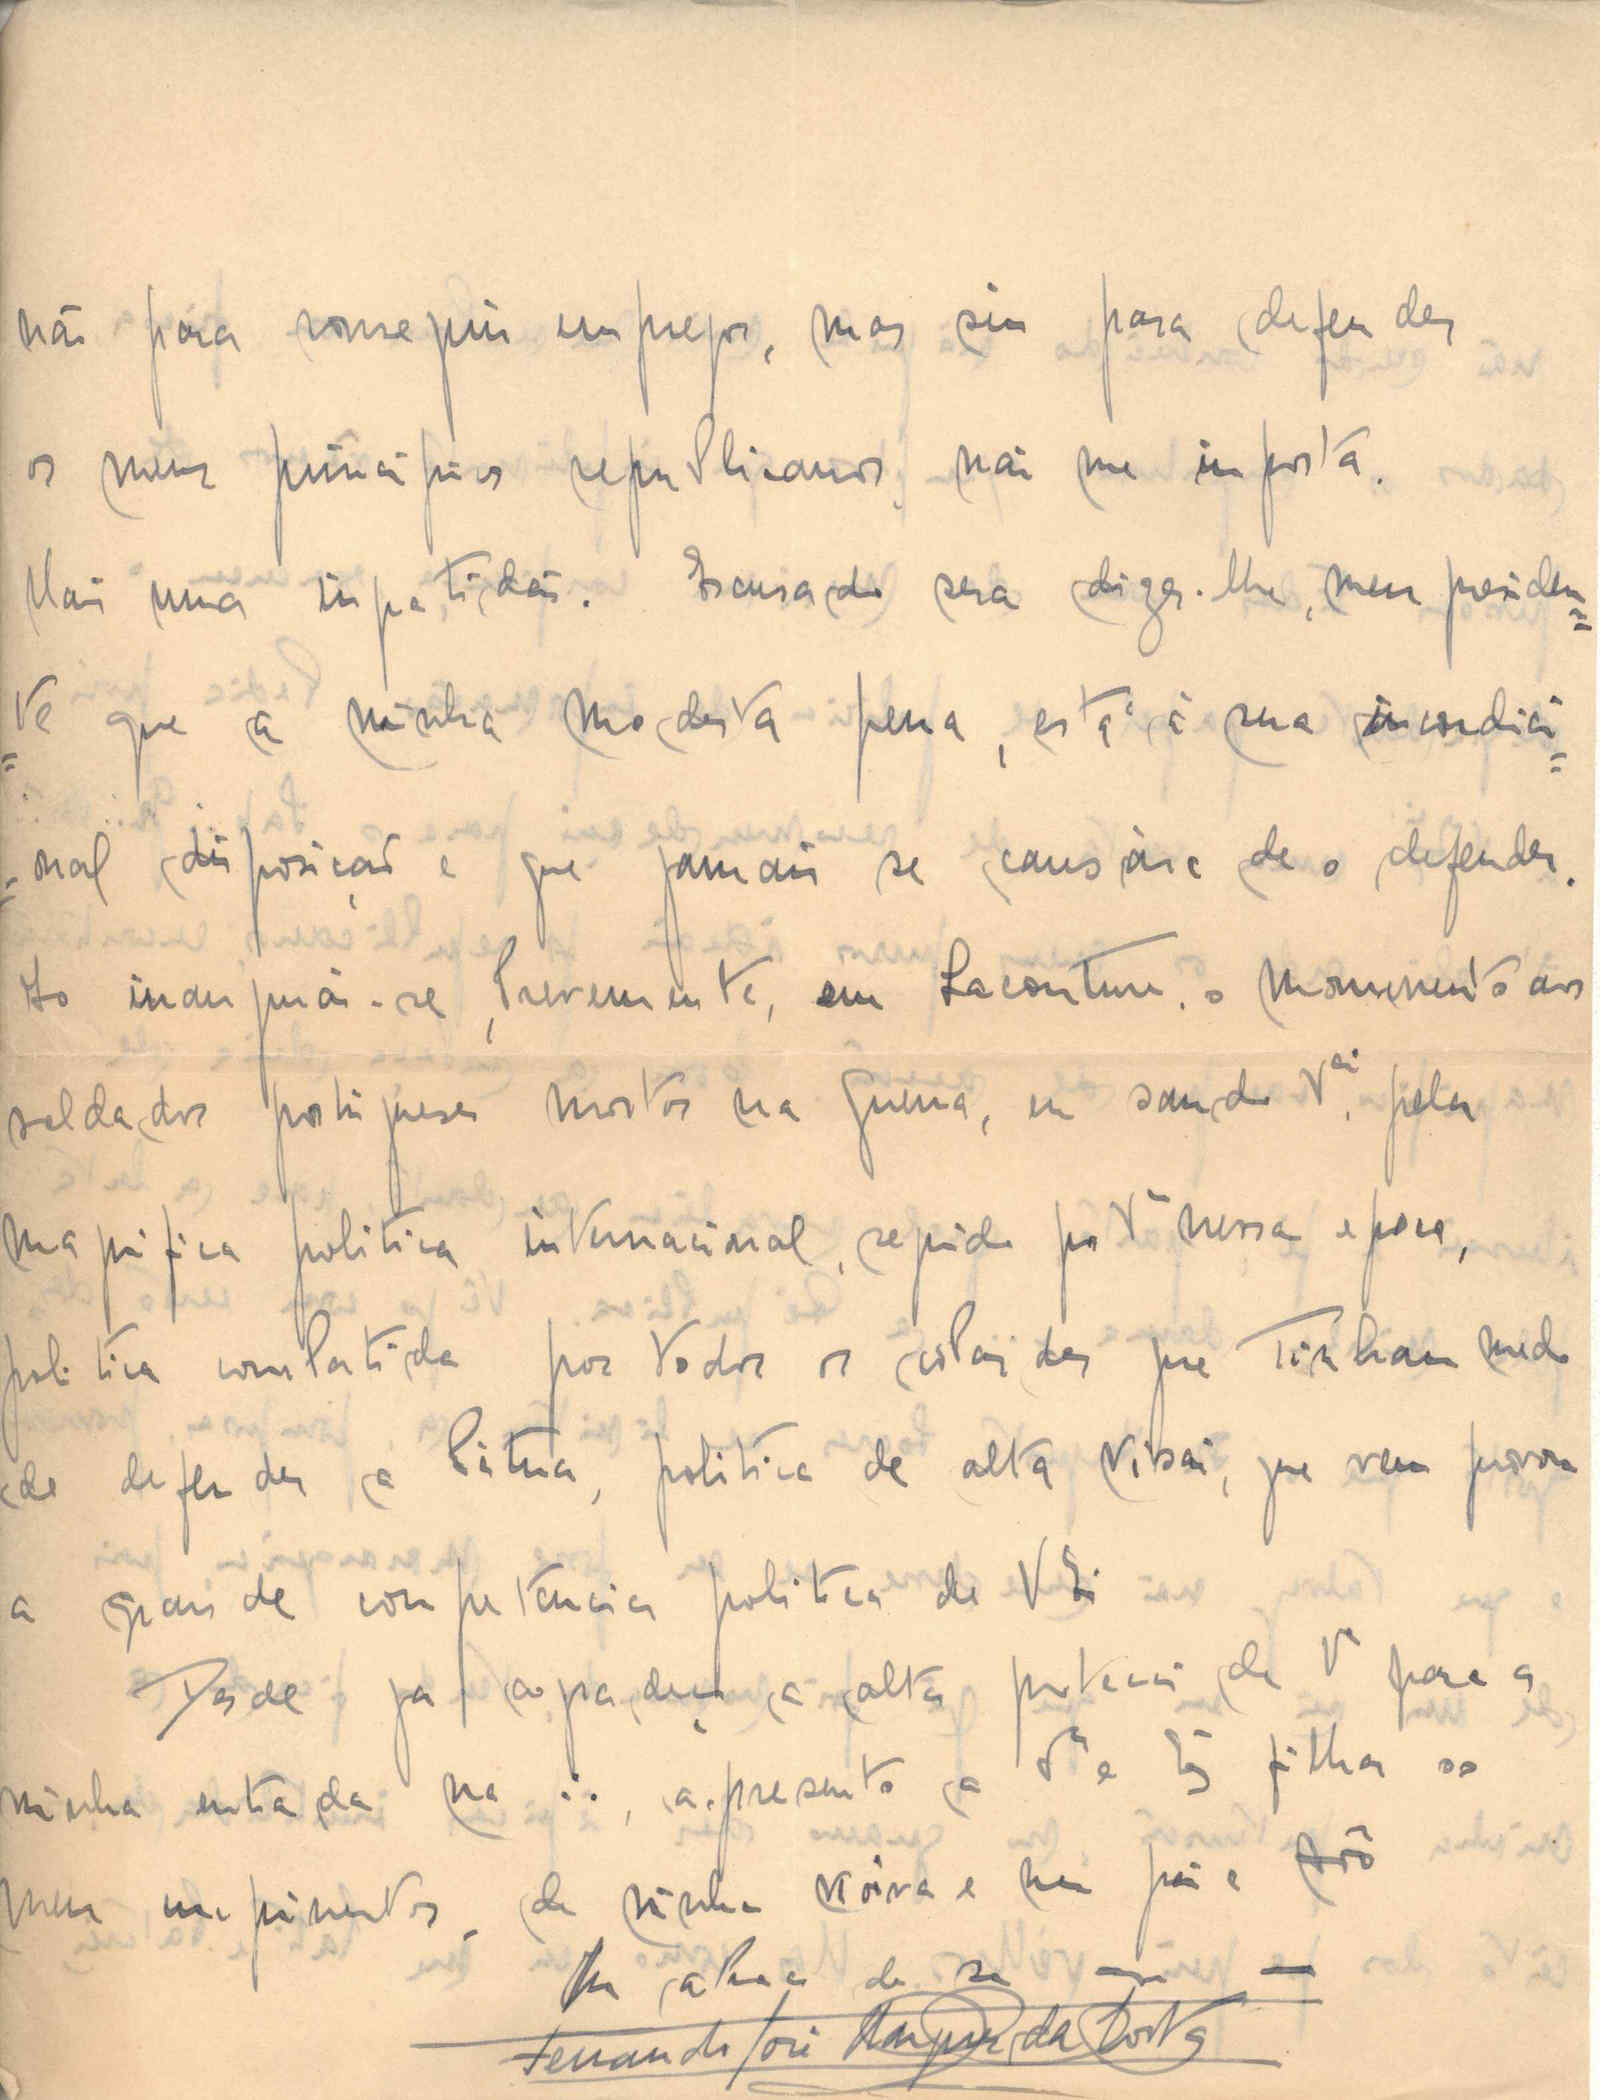 não para conseguir empregos, mas sim para defender
os meus principios republicanos, não me importa.
Mais uma ingratidão. Escusado sera dizer-lhe, meu presiden=
=te que a minha modesta pena, está á sua incondici=
=onal disposição e que jamais se cansára de o defender.
inaugurar-se, brevemente, em Lacouture, o monumento aos
soldados portugueses mortos na Guerra, pela
magnifica politica internacional, seguida por V nessa epoca,
politica combatida por todos os cobardes que tinham medo
de defender a Patria, politica de alta visão, que vem provar
a grande competencia politica de V Ex
Desde já agradeço a alta protecção de V para a
minha entrada na ∴, apresento a V e filha os
meus cumprimentos, de minha noiva e meu pai e
Um abraço do seu
Fernando José Marques da Costa